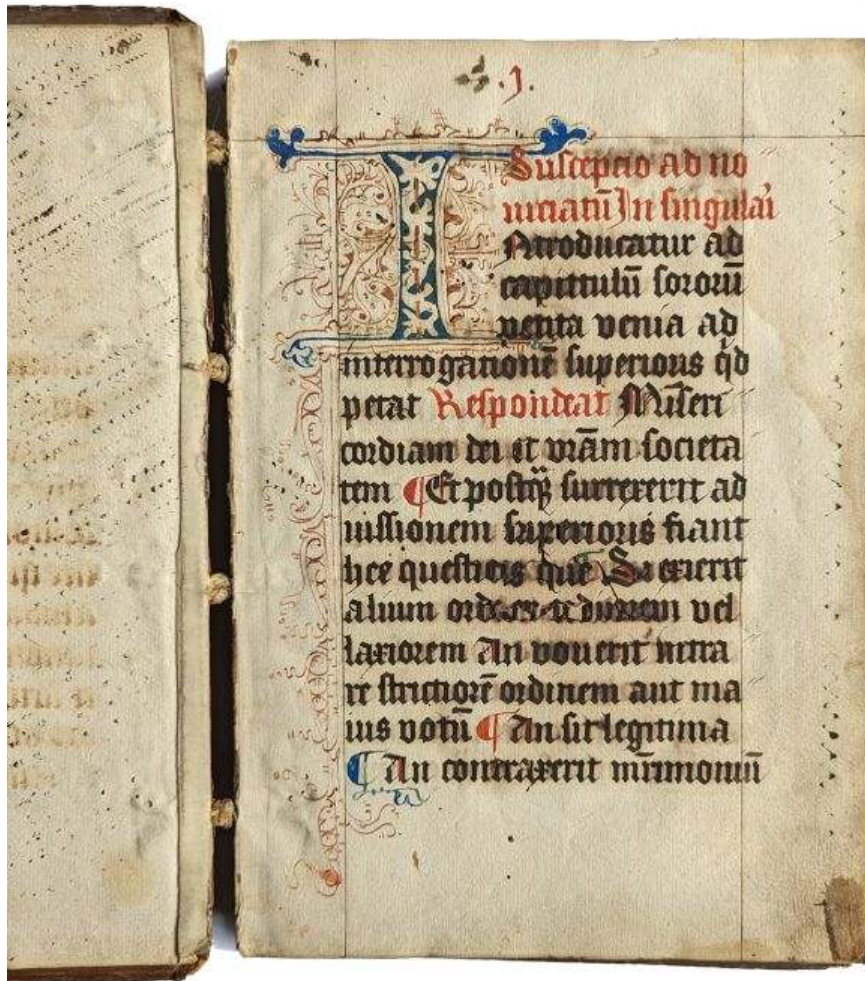 .j.
Suscepcio ad no
uiciatū In singulari
Introducatur ad
capittulū sororū
petita venia ad
interrogationē superioris qd
petat Respondeat Miseri
cordiam dei et vrām societa
tem ¶ Et postq̄ surrexerit ad
iussionem superioris fiant
hee questiones
alium vel
laxiorem An vouerit intra
re strictiorē ordinem aut ma
ius votū ¶ An sit legitima
¶ An contraxerit mr̄imoniū